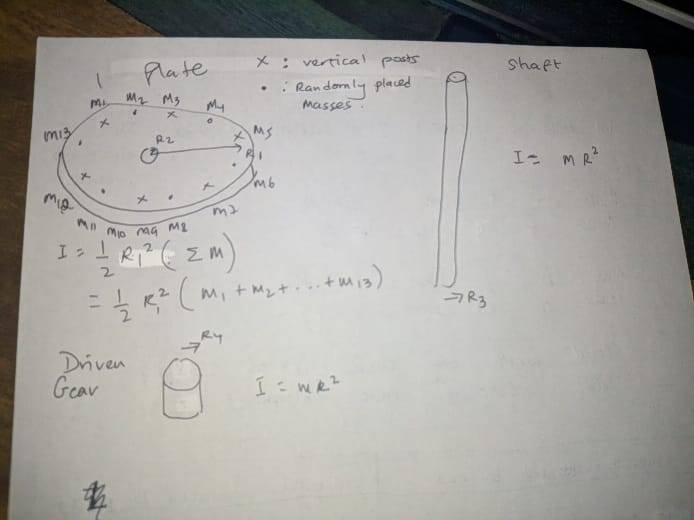 Plate
x : vertical posts
• : Randomly placed
masses.
Shaft
M1 M2 M3 M4 M5
M13
R2
R1
M6
M12
M11 M10 M9 M8 M7
I = 1/2 R1² ( Σ M)
= 1/2 R1² ( M1 + M2 + ... + M13 )
I = m R²
→ R3
→ R4
Driven
Gear
I = mR²